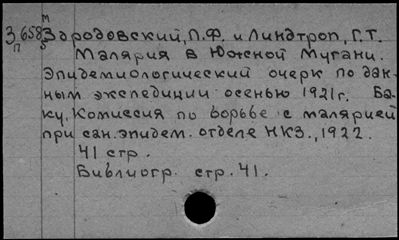 М
З 658 Здродовский, П.Ф. и Линдтроп, Г.Т.
П 5
Малярия в Южной Мугани.
Эпидемиологический очерк по дан-
ным экспедиции осенью 1921г. Ба-
ку, Комиссия по борьбе с малярией
при сан. эпидем. отделе НКЗ., 1922.
41 стр.
Библиогр. стр. 41.